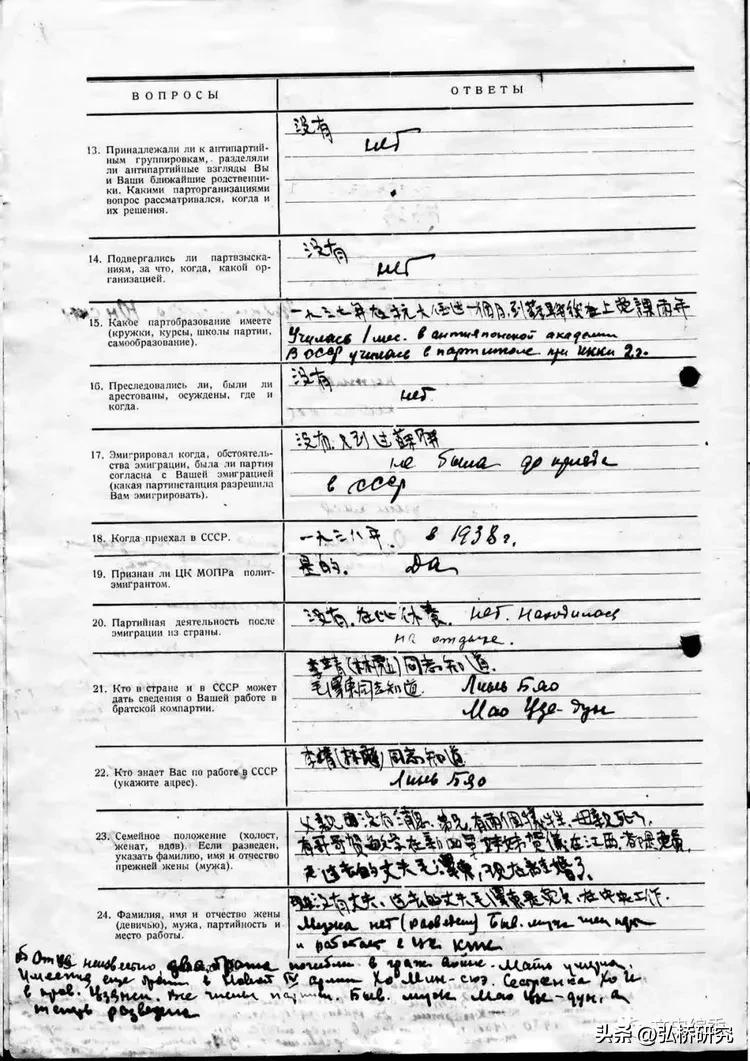 ВОПРОСЫ
ОТВЕТЫ
13. Принадлежали ли к антипартий-
ным группировкам, разделяли
ли антипартийные взгляды Вы
и Ваши ближайшие родственни-
ки. Какими парторганизациями
вопрос рассматривался, когда и
их решения.
没有
нет
14. Подвергались ли партвзыска-
ниям, за что, когда, какой ор-
ганизацией.
没有
нет
15. Какое партобразование имеете
(кружки, курсы, школы партии,
самообразование).
一九三七年在抗大 一個月,到蘇聯後在上党課兩年
Училась 1 мес. в антияпонской академии
В СССР училась в партшколе при ИККИ 2 г.
16. Преследовались ли, были ли
арестованы, осуждены, где и
когда.
没有
нет.
17. Эмигрировал когда, обстоятель-
ства эмиграции, была ли партия
согласна с Вашей эмиграцией
(какая партинстанция разрешила
Вам эмигрировать).
没有.只到过蘇聯
не была до приезда
в СССР
18. Когда приехал в СССР.
一九三八年.
в 1938 г.
19. Признан ли ЦК МОПРа полит-
эмигрантом.
是的.
Да
20. Партийная деятельность после
эмиграции из страны.
没有.在此休養.
нет. Находилась
на отдыхе.
21. Кто в стране и в СССР может
дать сведения о Вашей работе в
братской компартии.
同志知道.
毛澤東同志知道.
Линь Бяо
Мао Цзе-дун
22. Кто знает Вас по работе в СССР
(укажите адрес).
同志知道
Линь Бяо
23. Семейное положение (холост,
женат, вдов). Если разведен,
указать фамилию, имя и отчество
прежней жены (мужа).
父親 没有消息. 弟兄有兩個犧牲.母親死了,
有哥哥賀敏学在新四軍 妹妹賀儀在江西.都是党員,
过去的丈夫毛澤東,现在離婚了.
24. Фамилия, имя и отчество жены
(девичью), мужа, партийность и
место работы.
没有丈夫.过去的丈夫毛澤東是党員.在中央工作.
Мужа нет (разведены) Быв. муж член
и работает в ЦК ККП
Об отце неизвестно два брата погибли в граж. войне. Мать умерла.
Имеется еще брат в Новой IV армии Хо Мин-сюэ. Сестренка Хо И
в пров. Цзянси. Все члены партии. Быв. муж Мао Цзе-дун, а
теперь разведена
头条 @弘桥研究